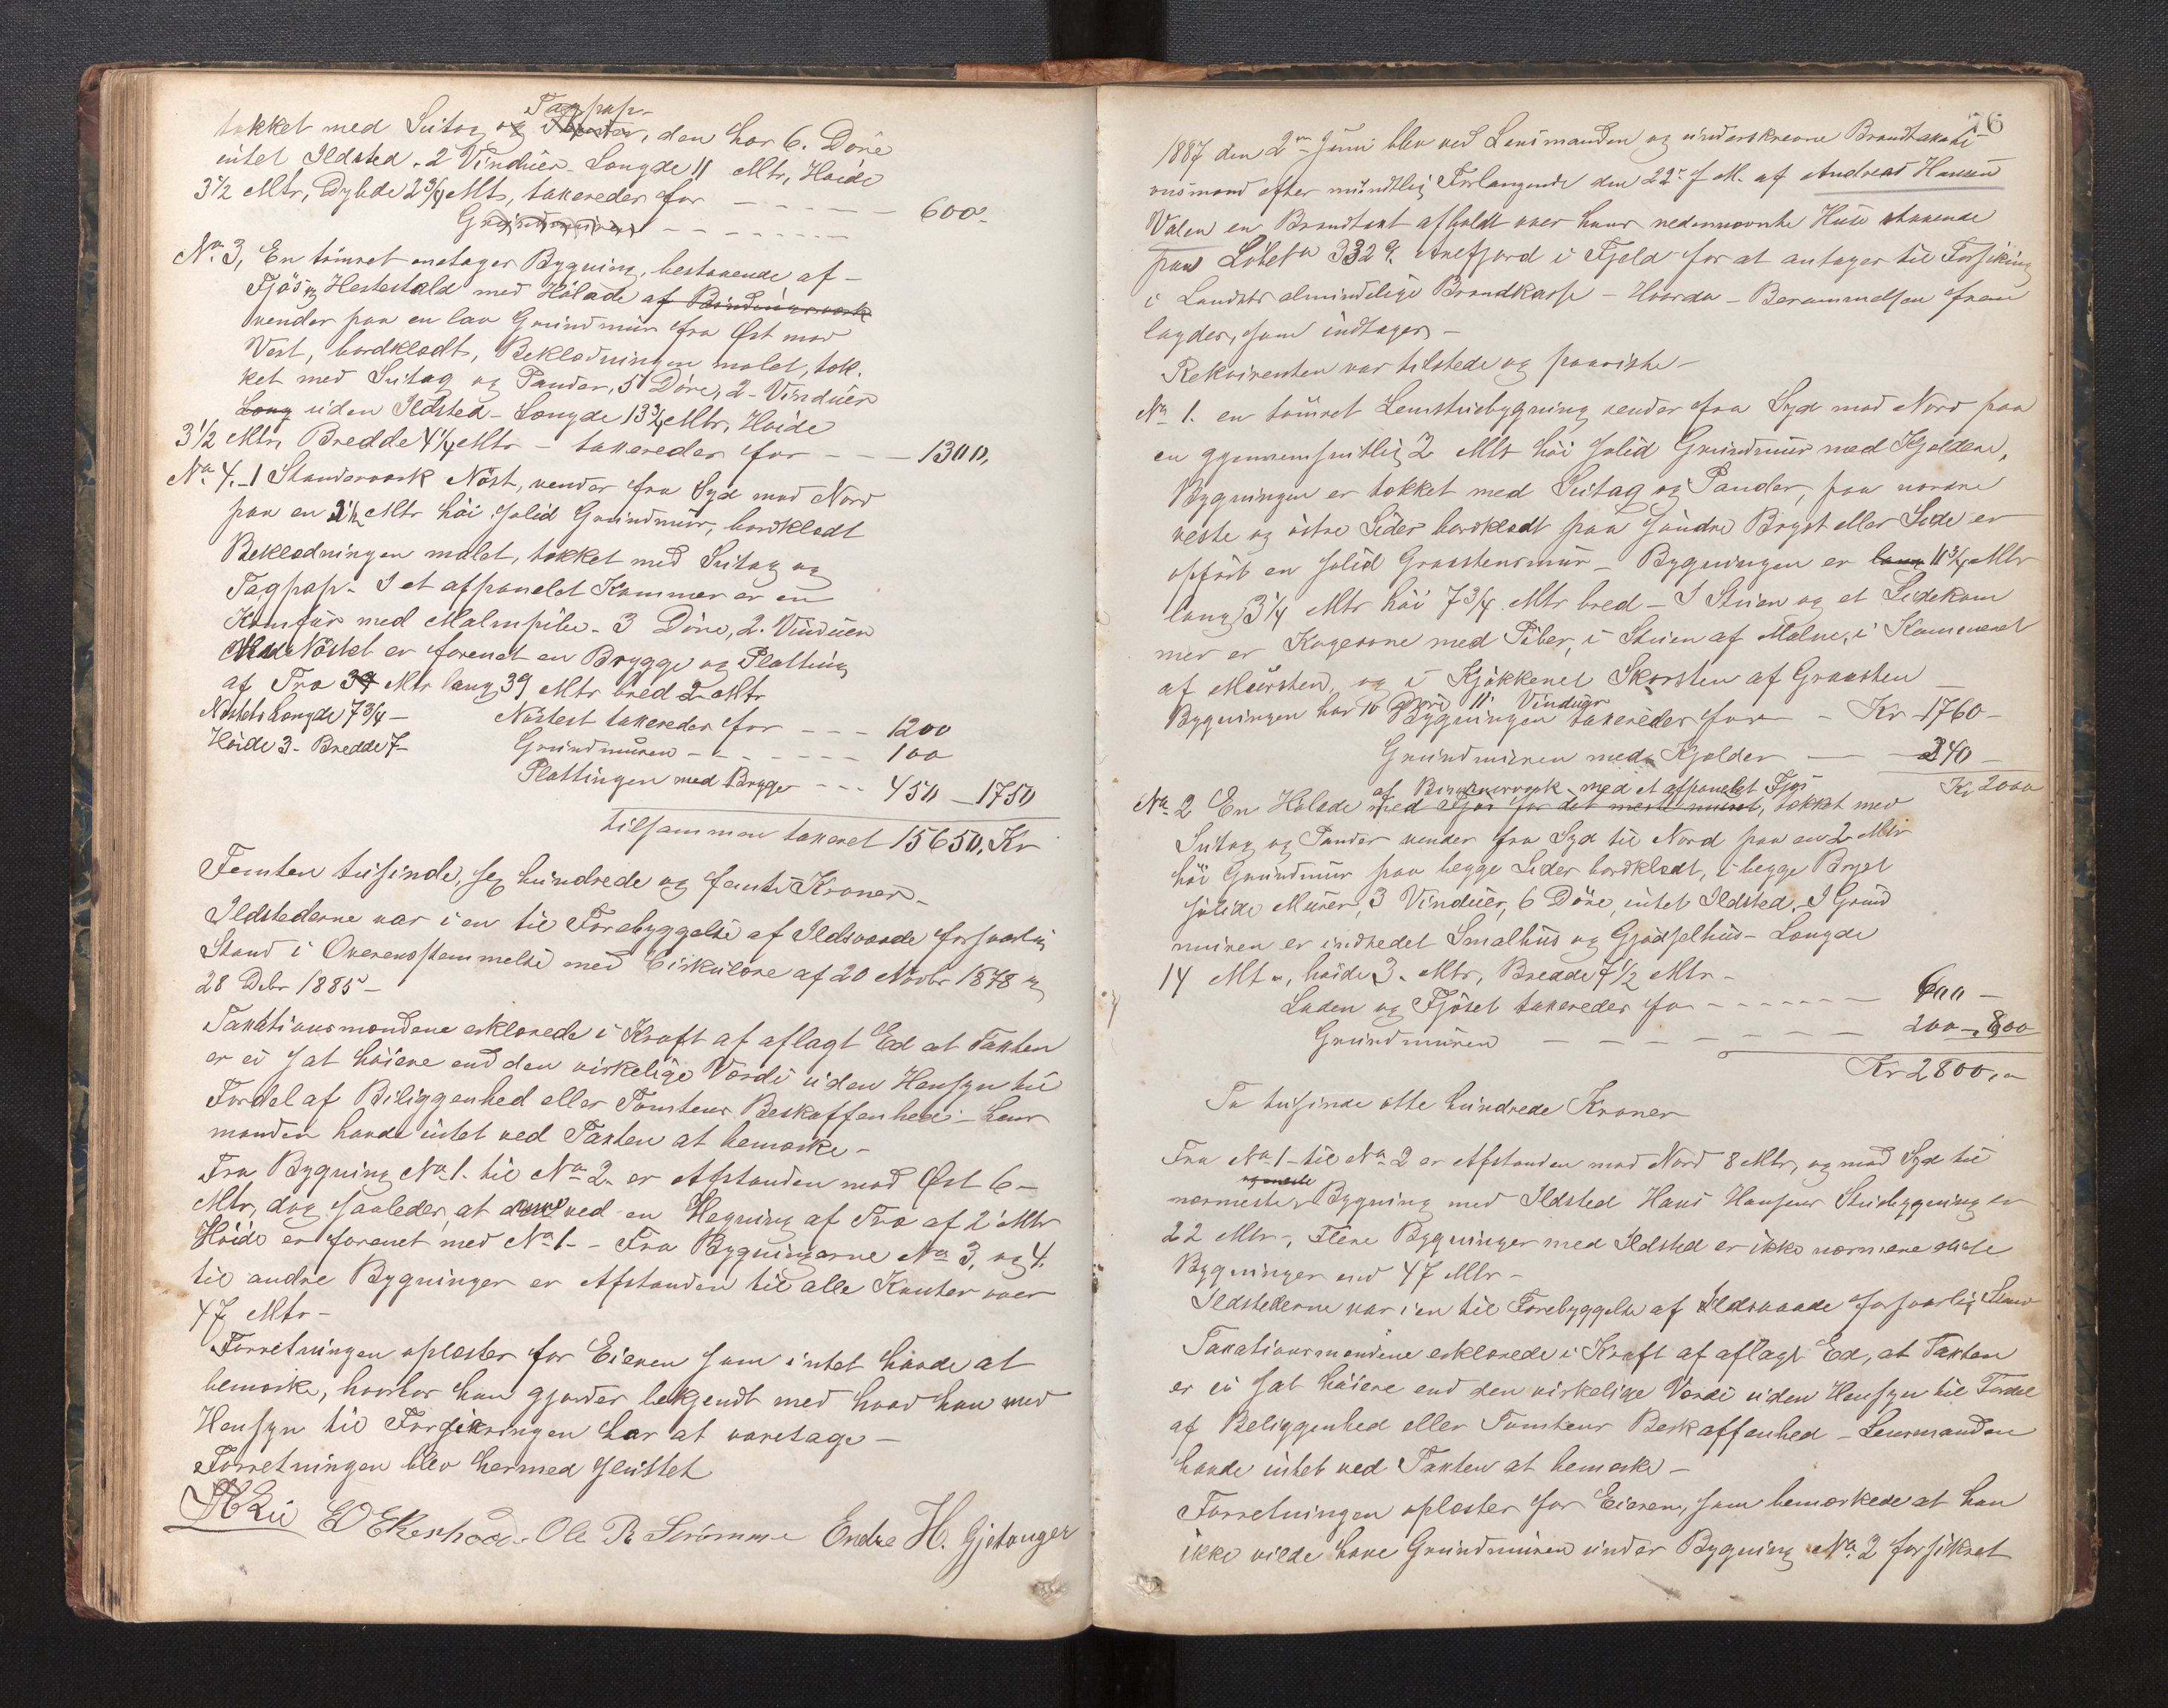 Tagpap.
tækket med Sutag og, den har 6. Döre
intet Ildsted. 2 Vinduer Længde 11 Mtr, Høide
3 1/2 Mtr, Dybde 2 3/4 Mtr, taxeredes for - - - - - 600.
Grundmuren - - - - - - -
No. 3, En tömret enetages Bygning, bestaaende af -
Fjös og Hestestald med Hölade af Bindingsværk
vender paa en lav Grundmur fra Øst mod
Vest, bordklædt, Beklædningen malet, tæk.
ket med Sutag og Pander, 5 Döre, 2 Vinduer
Læng uden Ildsted - Længde 13 3/4 Mtr, Høide
3 1/2 Mtr, Bredde 4 1/4 Mtr - taxeredes for - - - 1300,
No. 4. 1 Standerværk Nöst, vender fra Syd mod Nord
paa en 2 1/2 Mtr höi solid Grundmur, bordklædt
Beklædningen malet, tækket med Sutag og
Tagpap. I et afpanelet Kammer er en
Komfur med Malmpibe. 3 Döre, 2. Vinduer
Nöstet er forenet en Brygge og Platting
af Træ 39 Mtr lang, 39 Mtr bred 2 Mtr
Nöstets Længde 7 3/4 - Nöstet taxeredes for - - - 1200
Höide 3 - Bredde 7 - Grundmuren - - - - - - 100
Plattingen med Brygge - - - 450 - 1750
tilsammen taxeret 15650, Kr
Femten tusinde, sex hundrede og femti Kroner -
Ildstederne var i en til Forebyggelse af Ildsvaade forsvarlig
Stand i Overensstemmelse med Cirkulære af 20 Novbr 1878 og
28 Debr 1885 -
Taxationsmændene erklærede i Kraft af aflagt Ed at Taxten
er ei sat höiere end den virkelige Værdi uden Hensyn til
Fordel af Biliggenhed eller Tomtens Beskaffenhed - Lens
manden havde intet ved Taxten at bemærke -
Fra Bygning No 1. til No 2. er Afstanden mod Øst 6 -
Mtr, dog saaledes at den ved en Hegning af Træ af 2 Mtr
Höide er forenet med No 1. - Fra Bygningerne No 3, og 4.
til andre Bygninger er Afstanden til alle Kanter over
47 Mtr -
Forretningen oplæstes for Eieren som intet havde at
bemærke, hvorhos han gjordes bekjendt med hvad han med
Hensyn til Forsikringen har at varetage -
Forretningen blev hermed sluttet
Ole R. Strömme Endre H. Gjetanger
76
1887 den 2en Juni blev ved Lensmanden og underskrevne Brandtaxati
onsmænd efter mundtlig Forlangende den 22de f. M. af Andreas Hansen
Valen en Brandtaxt afholdt over hans nedennævnte Huse staaende
paa Löbetn 332 a. Anefjord i Fjeld for at antages til Forsikring
i Landets almindelige Brandkasse - Hvorda - Berammelsen frem
lagdes, som indtages -
Rekvirenten var tilstede og paaviste -
No 1. en tömret Lemstuebygning vender fra Syd mod Nord paa
en gjennemsnitlig 2 Mtr höi solid Grundmur med Kjeldere,
Bygningen er tækket med Sutag og Pander, paa nordre
vestre og östre Sider bordklædt paa söndre Bryst eller Side er
opfört en solid Graastensmur - Bygningen er lang 11 3/4 Mtr
lang, 3 1/4 Mtr höi 7 3/4 Mtr bred - I Stuen og et Sidekam
mer er Kogeovne med Piber, i Stuen af Malm, i Kammeret
af Mursten, og i Kjökkenet Skorsten af Graasten
Bygningen har 10 Döre 11 Vinduer Bygningen taxeredes for - Kr - 1760 -
Grundmuren med Kjelder - 240 -
Kr 2000
af Bindingsværk med et afpanelet Fjös
No 2 En Hölade med Fjös for det meste muret, tækket med
Sutag og Pander vender fra Syd til Nord paa en 2 Mtr
höi Grundmur paa begge Sider bordklædt, i begge Bryst
solide Murer, 3 Vinduer, 6 Döre, intet Ildsted, I Grund
muren er indredet Smalhus og Gjödselhus - Længde
14 Mtr, höide 3. Mtr, Bredde 7 1/2 Mtr -
Laden og Fjöset taxeredes for - - - - - - - 600 -
Grundmuren - - - - - 200 - 800
Kr 2800,00
To tusinde otte hundrede Kroner
Fra No 1 - til No 2 er Afstanden mod Nord 8 Mtr, og mod Syd til
og eneste
nærmeste Bygning med Ildsted Hans Hansens Stuebygning er
22 Mtr -, Flere Bygninger med Ildsted er ikke nærmere disse
Bygninger end 47 Mtr -
Ildstederne var i en til Forebyggelse af Ildsvaade forsvarlig Stand
Taxationsmændene erklærede i Kraft af aflagt Ed, at Taxten
er ei sat höiere end den virkelige Værdi uden Hensyn til Fordel
af Beliggenhed eller Tomtens Beskaffenhed - Lensmanden
havde intet ved Taxten at bemærke -
Forretningen oplæstes for Eieren, som bemærkede at han
ikke vilde have Grundmuren under Bygning No 2 forsikret